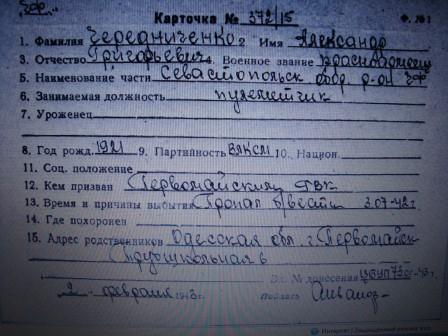 Карточка № 372/15 Ф. № 1
1. Фамилия Чередниченко 2. Имя Александр
3. Отчество Григорьевич 4. Военное звание красноармеец
5. Наименование части Севастопольск обор. р-он ЧФ
6. Занимаемая должность пулеметчик
7. Уроженец
8. Год рожд. 1921 9. Партийность ВЛКСМ 10. Национ.
11. Соц. положение
12. Кем призван Первомайским ГВК
13. Время и причины выбытия Пропал б/вести 3.07-42г.
14. Где похоронен
15. Адрес родственников Одесская обл. г. Первомайск
6
Вх. № донесения
2 февраля